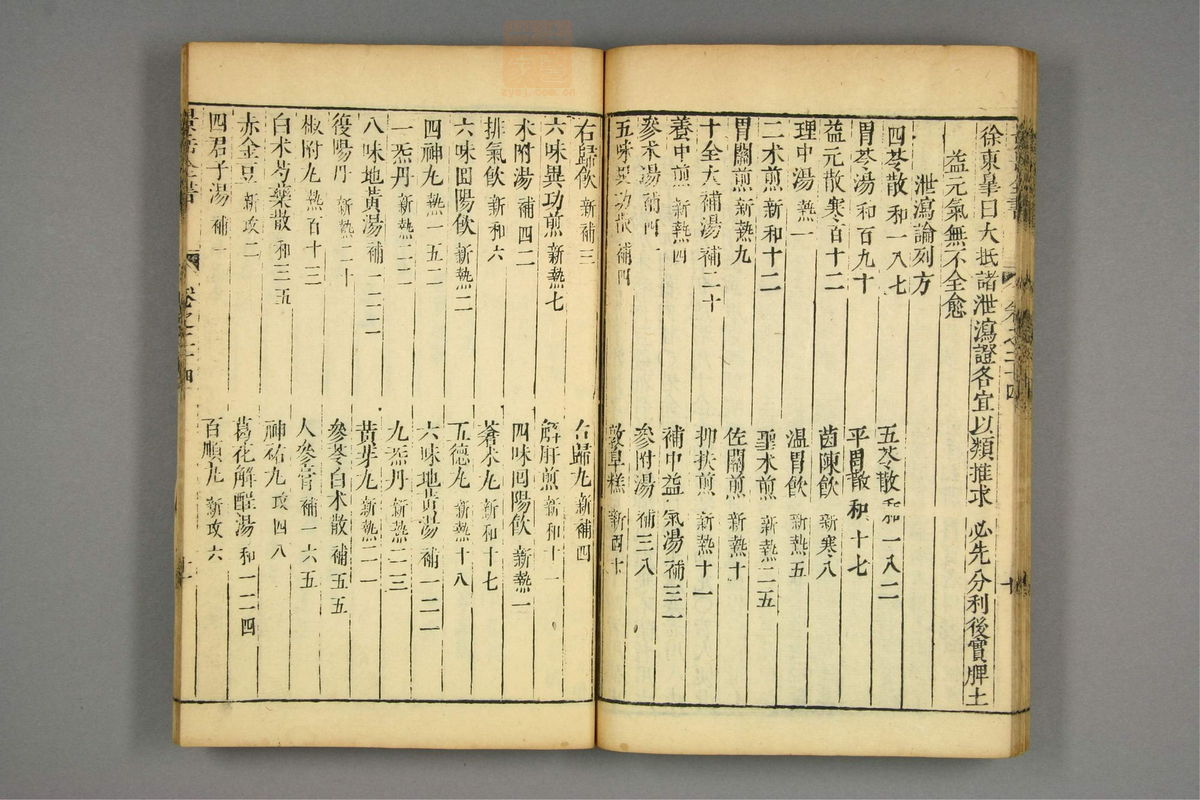 徐東臯曰大抵諸泄瀉證各宜以類推求必先分利後實脾土
益元氣無不全愈
泄瀉論列方
四苓散 和一八七 五苓散 和一八二
胃苓湯 和百九十 平胃散 和十七
益元散 寒百十二 茵陳飲 新寒八
理中湯 熱一 溫胃飲 新熱五
二朮煎 新和十二 聖朮煎 新熱二五
胃關煎 新熱九 佐關煎 新熱十
十全大補湯 補二十 抑扶煎 新熱十一
養中煎 新熱四 補中益氣湯 補三一
參朮湯 補四一 參附湯 補三八
五味異功散 補四 敦阜糕
右歸飲 新補三 右歸丸 新補四
六味異功煎 新熱七 解肝煎 新和十一
朮附湯 補四二 四味回陽飲 新熱一
排氣飲 新和六 蒼朮丸 新和十七
六味回陽飲 新熱二 五德丸 新熱十八
四神丸 熱一五二 六味地黃湯 補一二一
一炁丹 新熱二二 九炁丹 新熱二三
八味地黃湯 補一二二 黃芽丸 新熱二一
復陽丹 新熱二十 參苓白朮散 補五五
椒附丸 熱百十三 人參膏 補一六五
白朮芍藥散 和三五 神祐丸 攻四八
赤金豆 新攻二 葛花解酲湯 和一二四
四君子湯 補一 百順丸 新攻六
景岳全書 卷之二十四